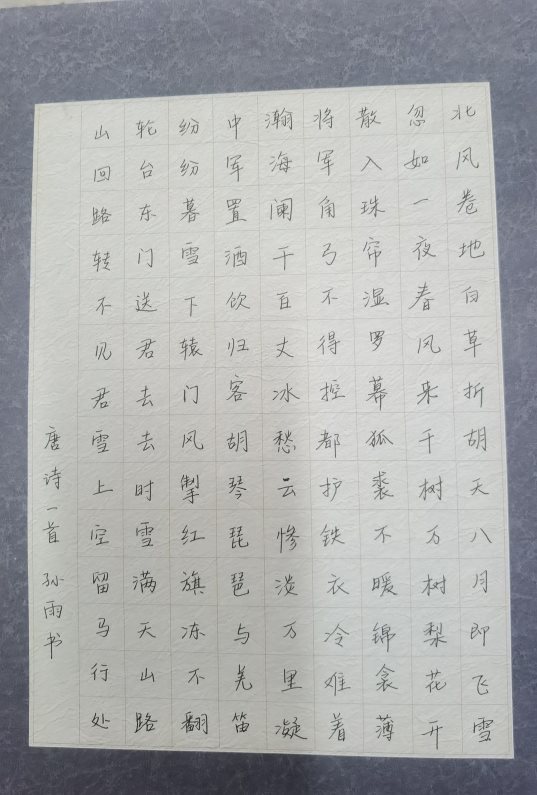 北风卷地白草折胡天八月即飞雪
忽如一夜春风来千树万树梨花开
散入珠帘湿罗幕狐裘不暖锦衾薄
将军角弓不得控都护铁衣冷难着
瀚海阑干百丈冰愁云惨淡万里凝
中军置酒饮归客胡琴琵琶与羌笛
纷纷暮雪下辕门风掣红旗冻不翻
轮台东门送君去去时雪满天山路
山回路转不见君雪上空留马行处
唐诗一首 孙雨书